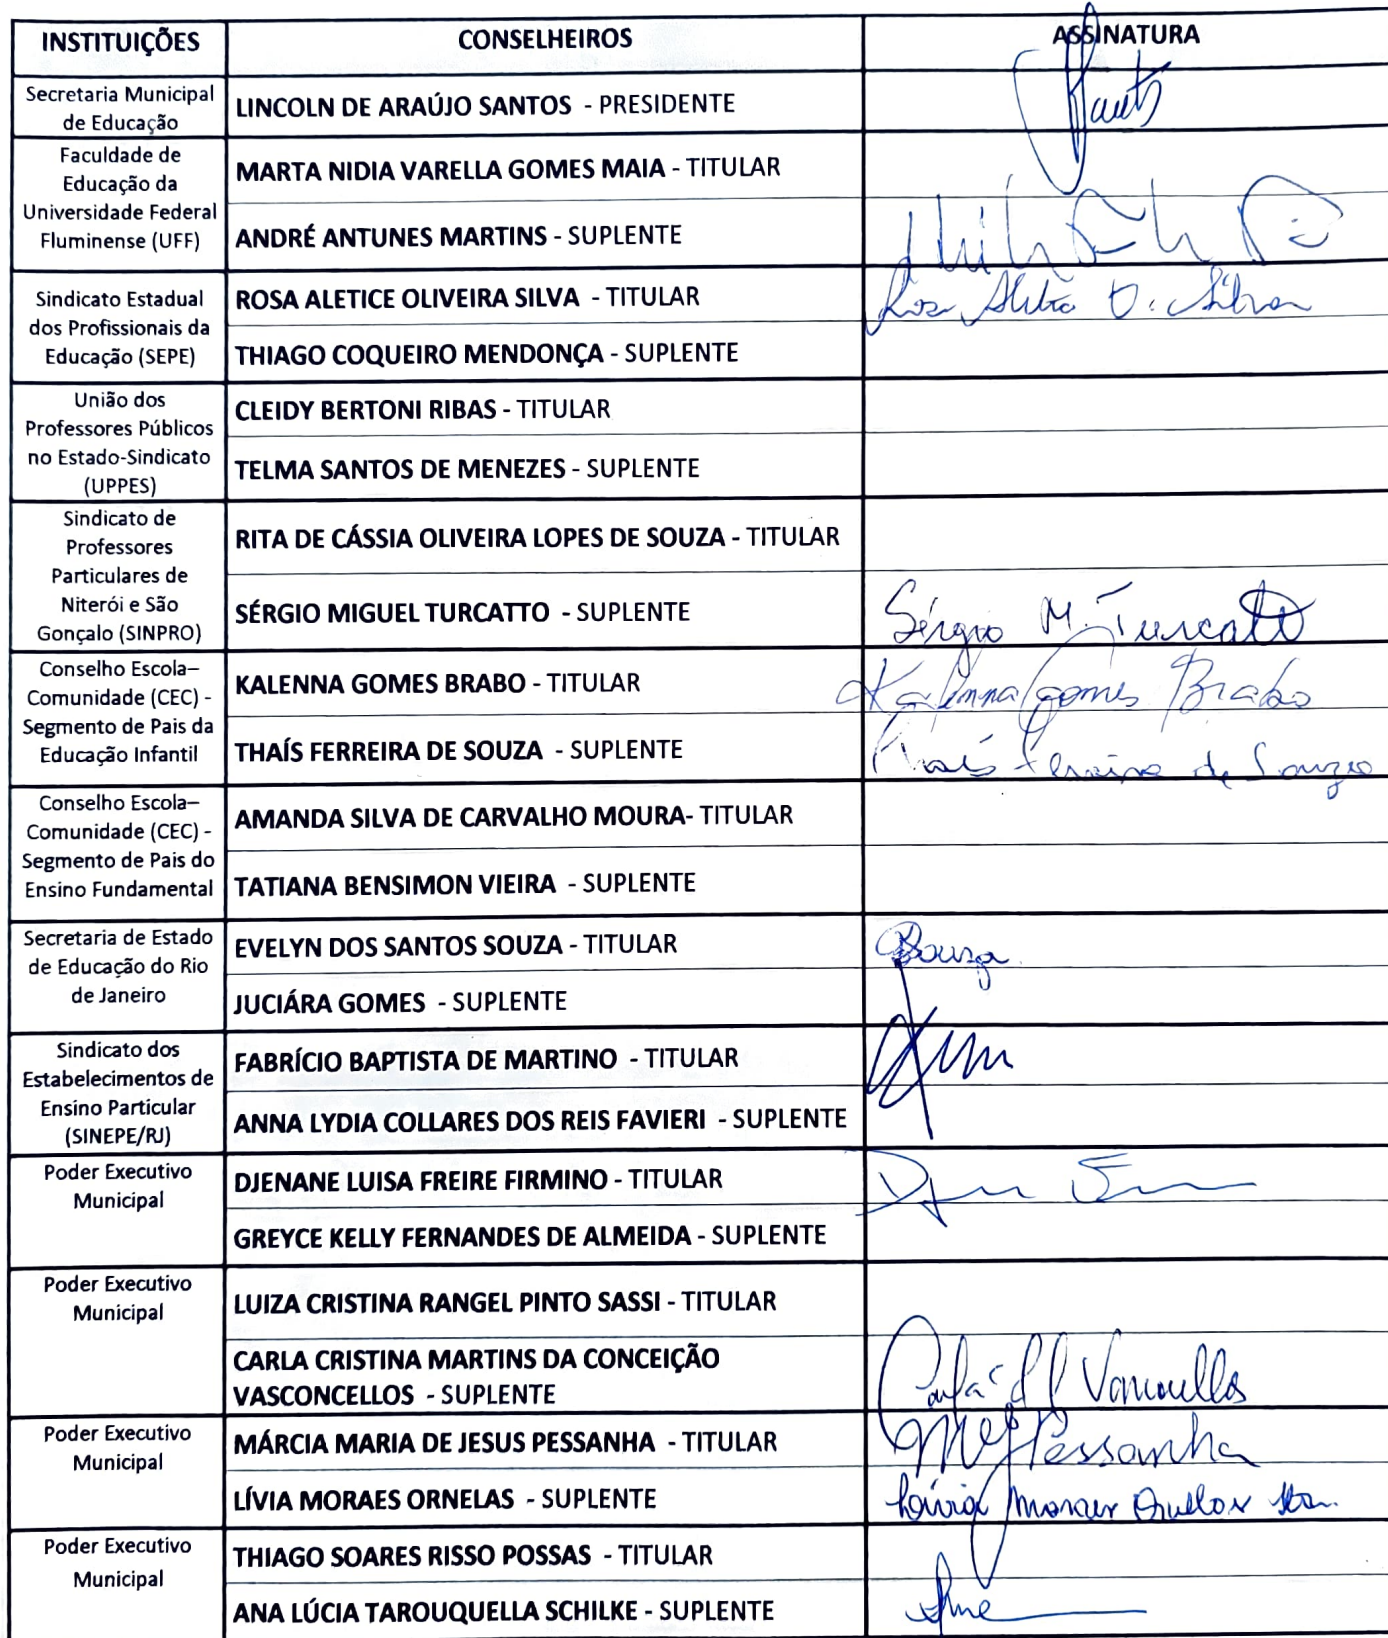 INSTITUIÇÕES CONSELHEIROS ASSINATURA
Secretaria Municipal
de Educação
LINCOLN DE ARAÚJO SANTOS - PRESIDENTE
Faculdade de
Educação da
Universidade Federal
Fluminense (UFF)
MARTA NIDIA VARELLA GOMES MAIA - TITULAR
ANDRÉ ANTUNES MARTINS - SUPLENTE
Sindicato Estadual
dos Profissionais da
Educação (SEPE)
ROSA ALETICE OLIVEIRA SILVA - TITULAR
O. Silva
THIAGO COQUEIRO MENDONÇA - SUPLENTE
União dos
Professores Públicos
no Estado-Sindicato
(UPPES)
CLEIDY BERTONI RIBAS - TITULAR
TELMA SANTOS DE MENEZES - SUPLENTE
Sindicato de
Professores
Particulares de
Niterói e São
Gonçalo (SINPRO)
RITA DE CÁSSIA OLIVEIRA LOPES DE SOUZA - TITULAR
SÉRGIO MIGUEL TURCATTO - SUPLENTE
Sérgio M. Turcatto
Conselho Escola–
Comunidade (CEC) -
Segmento de Pais da
Educação Infantil
KALENNA GOMES BRABO - TITULAR
Kalenna Gomes Brabo
THAÍS FERREIRA DE SOUZA - SUPLENTE
Thaís Ferreira de Souza
Conselho Escola–
Comunidade (CEC) -
Segmento de Pais do
Ensino Fundamental
AMANDA SILVA DE CARVALHO MOURA- TITULAR
TATIANA BENSIMON VIEIRA - SUPLENTE
Secretaria de Estado
de Educação do Rio
de Janeiro
EVELYN DOS SANTOS SOUZA - TITULAR
Souza
JUCIÁRA GOMES - SUPLENTE
Sindicato dos
Estabelecimentos de
Ensino Particular
(SINEPE/RJ)
FABRÍCIO BAPTISTA DE MARTINO - TITULAR
ANNA LYDIA COLLARES DOS REIS FAVIERI - SUPLENTE
Poder Executivo
Municipal
DJENANE LUISA FREIRE FIRMINO - TITULAR
GREYCE KELLY FERNANDES DE ALMEIDA - SUPLENTE
Poder Executivo
Municipal
LUIZA CRISTINA RANGEL PINTO SASSI - TITULAR
CARLA CRISTINA MARTINS DA CONCEIÇÃO
VASCONCELLOS - SUPLENTE
Carla Vasconcellos
Poder Executivo
Municipal
MÁRCIA MARIA DE JESUS PESSANHA - TITULAR
MMJPessanha
LÍVIA MORAES ORNELAS - SUPLENTE
Lívia Moraes Ornellas
Poder Executivo
Municipal
THIAGO SOARES RISSO POSSAS - TITULAR
ANA LÚCIA TAROUQUELLA SCHILKE - SUPLENTE